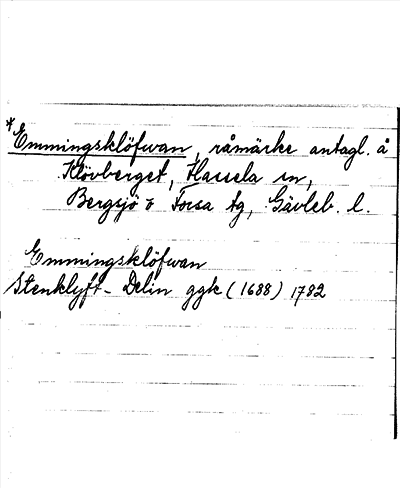 *Emmingsklöfwan, råmärke antagl. å
Klövberget, Hassela sn,
Bergsjö o Forsa tg, Gävleb. l.
Emmingsklöfwan
Stenklyft- Delin ggk (1688) 1782